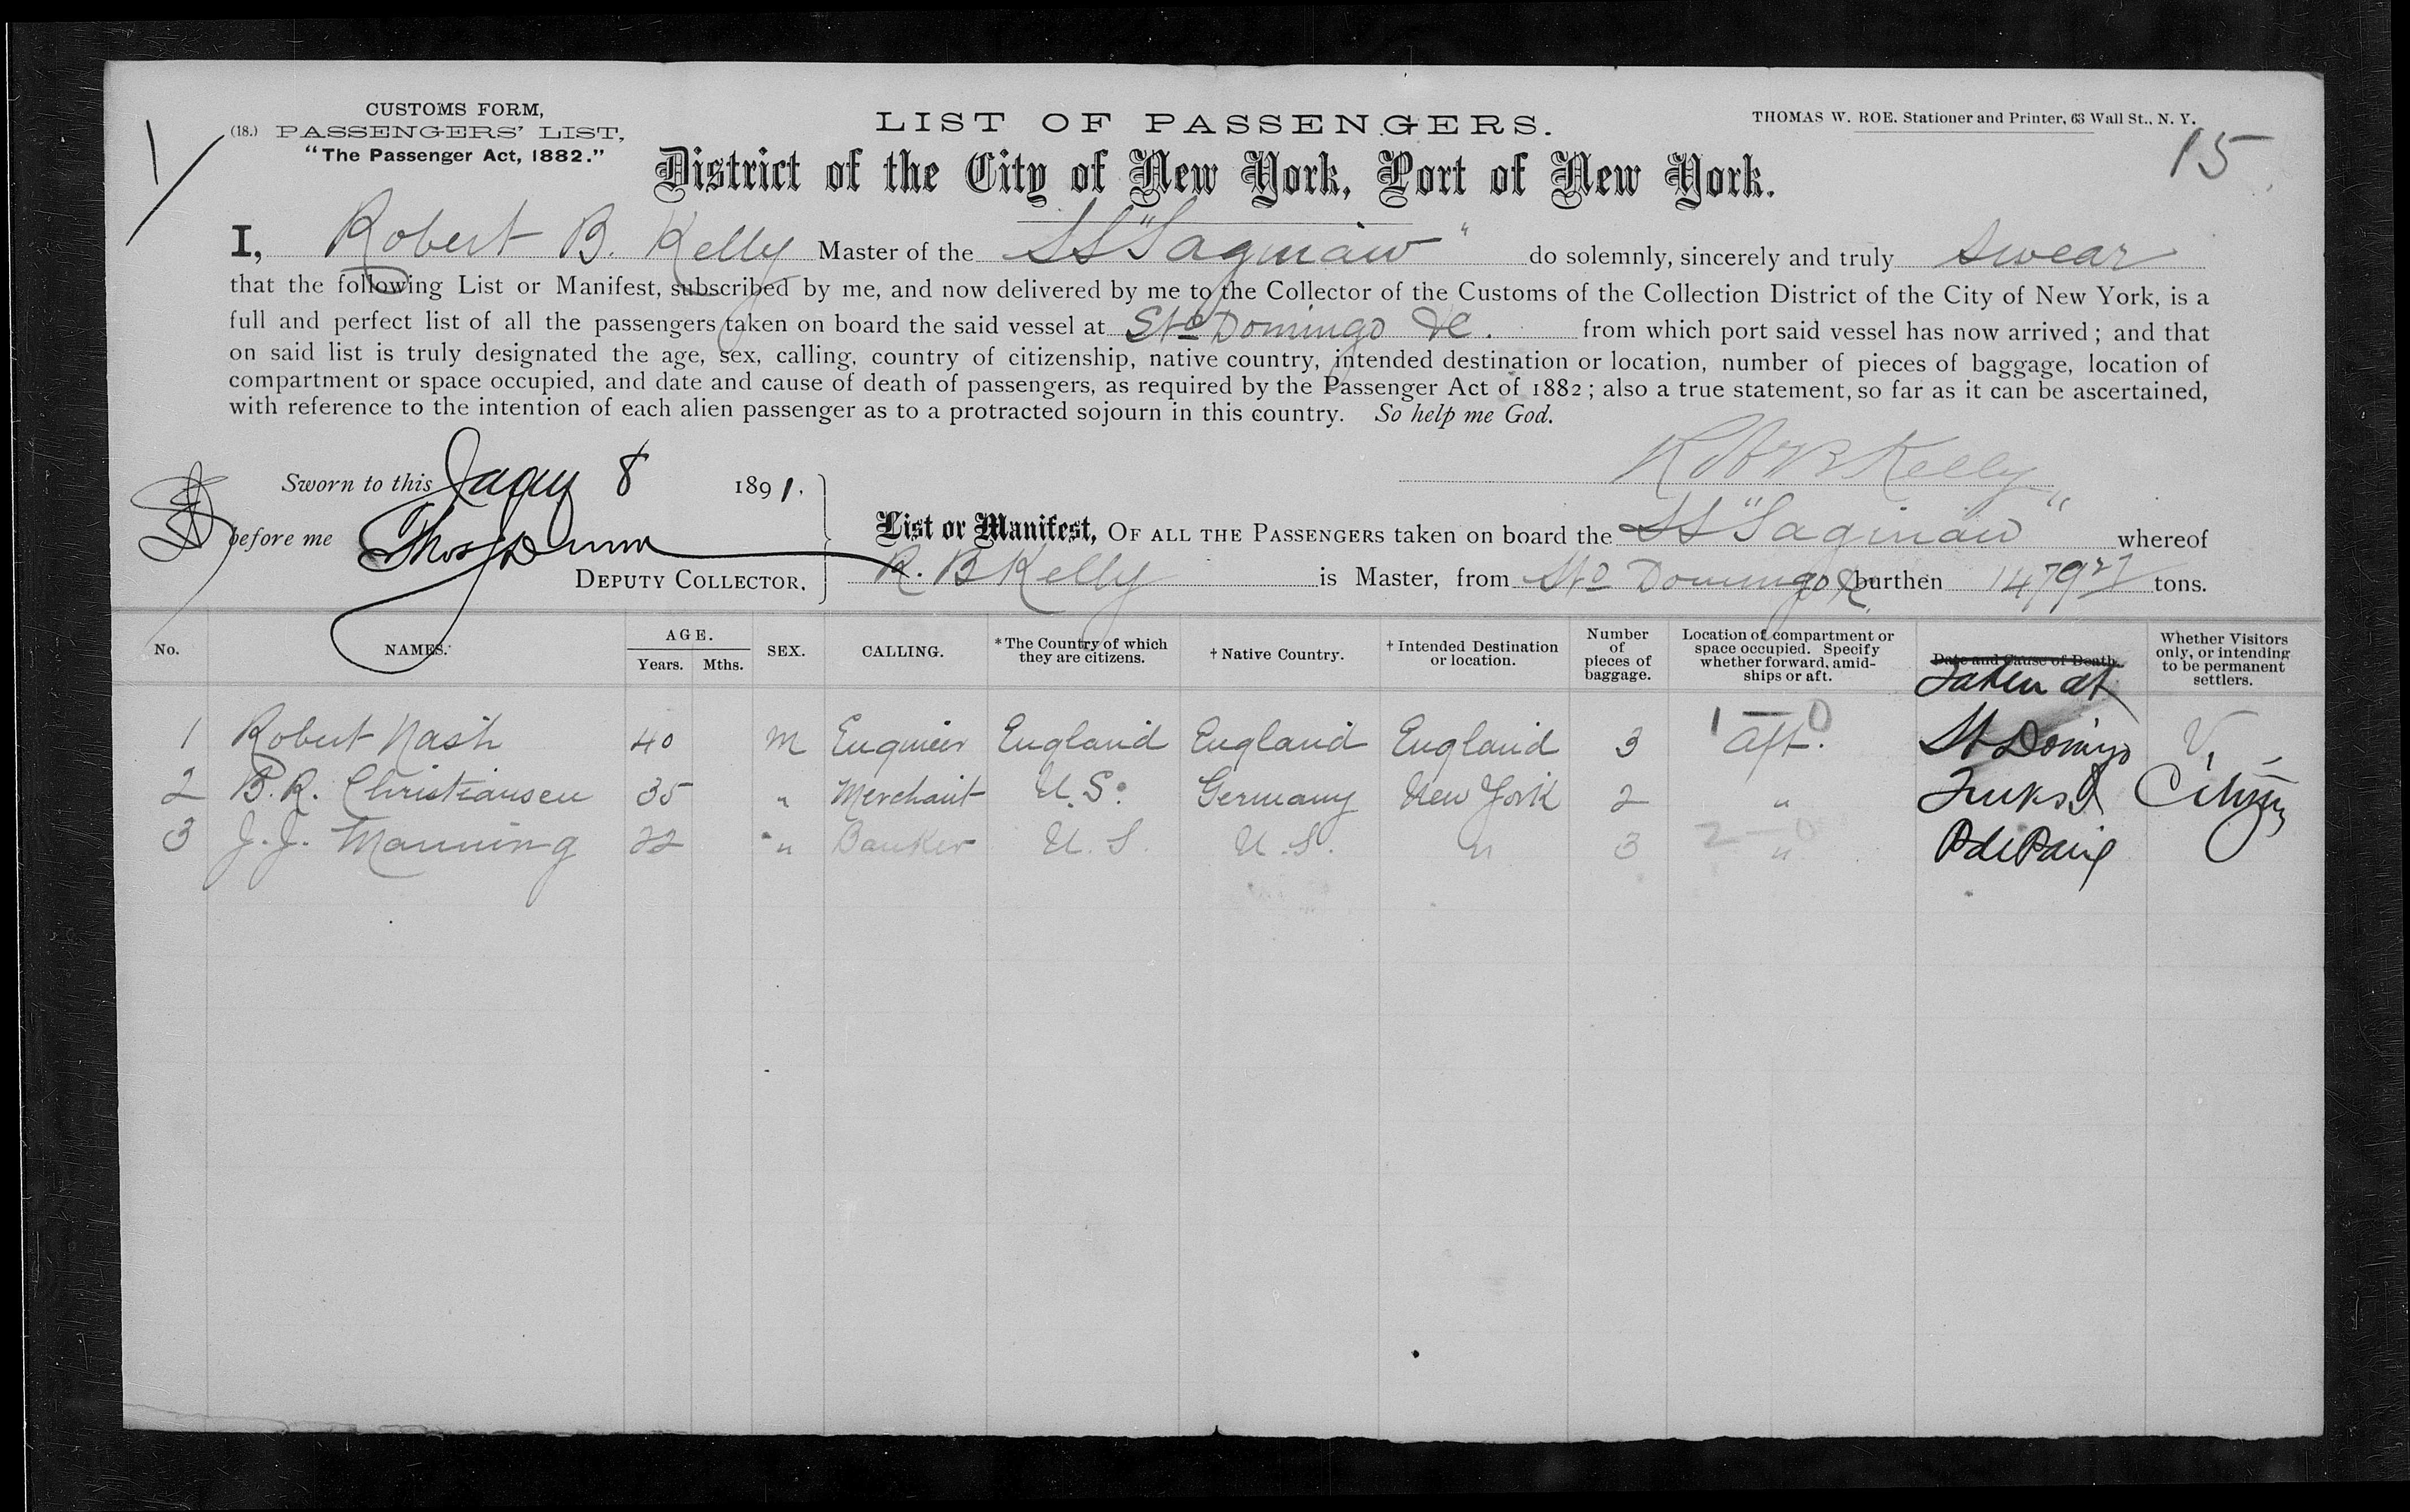 CUSTOMS FORM,
(18.) PASSENGERS' LIST,
"The Passenger Act, 1882."
LIST OF PASSENGERS.
THOMAS W. ROE. Stationer and Printer, 63 Wall St., N. Y.
15
District of the City of New York, Port of New York.
I, Robert B. Kelly Master of the SS "Saginaw" do solemnly, sincerely and truly swear
that the following List or Manifest, subscribed by me, and now delivered by me to the Collector of the Customs of the Collection District of the City of New York, is a
full and perfect list of all the passengers taken on board the said vessel at Sto Domingo &c. from which port said vessel has now arrived; and that
on said list is truly designated the age, sex, calling, country of citizenship, native country, intended destination or location, number of pieces of baggage, location of
compartment or space occupied, and date and cause of death of passengers, as required by the Passenger Act of 1882; also a true statement, so far as it can be ascertained,
with reference to the intention of each alien passenger as to a protracted sojourn in this country. So help me God.
Robt B Kelly
Sworn to this Jany 8 1891.
before me Thos Dunn
DEPUTY COLLECTOR.
List or Manifest, OF ALL THE PASSENGERS taken on board the SS "Saginaw" whereof
R. B Kelly is Master, from Sto Domingo &c burthen 1479 27 tons.
No. NAMES. AGE. Years. Mths. SEX. CALLING. *The Country of which they are citizens. † Native Country. † Intended Destination or location. Number of pieces of baggage. Location of compartment or space occupied. Specify whether forward, amidships or aft. Date and Cause of Death. Taken at Whether Visitors only, or intending to be permanent settlers.
1 — 0
1 Robert Nash 40 M Engineer England England England 3 Aft. St Domingo V
2 B. R. Christiansen 35 " Merchant U.S. Germany New York 2 " Turks I Citizen
2 — 0
3 J. J. Manning 22 " Banker U.S. U.S. " 3 " P de Paix